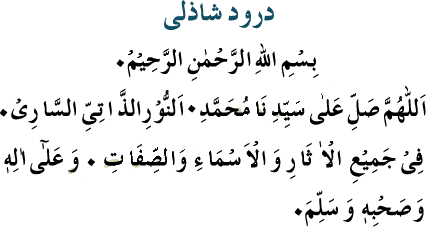 درود شاذلی
بِسْمِ اللهِ الرَّحْمٰنِ الرَّحِیْمُ۰
اَللّٰهُمَّ صَلِّ عَلٰی سَیِّدِ نَا مُحَمَّدِ۰ اَلنُّوْرِ الذَّ اتِیِّ السَّا رِیْ۰
فِیْ جَمِیْعِ الْاٰ ثَارِ وَ الْاَ سْمَا ءِ وَ الصِّفَا تِ ۰ وَ عَلٰٓی اٰلِهٖ
وَ صَحْبِهٖ وَ سَلِّمَ۰